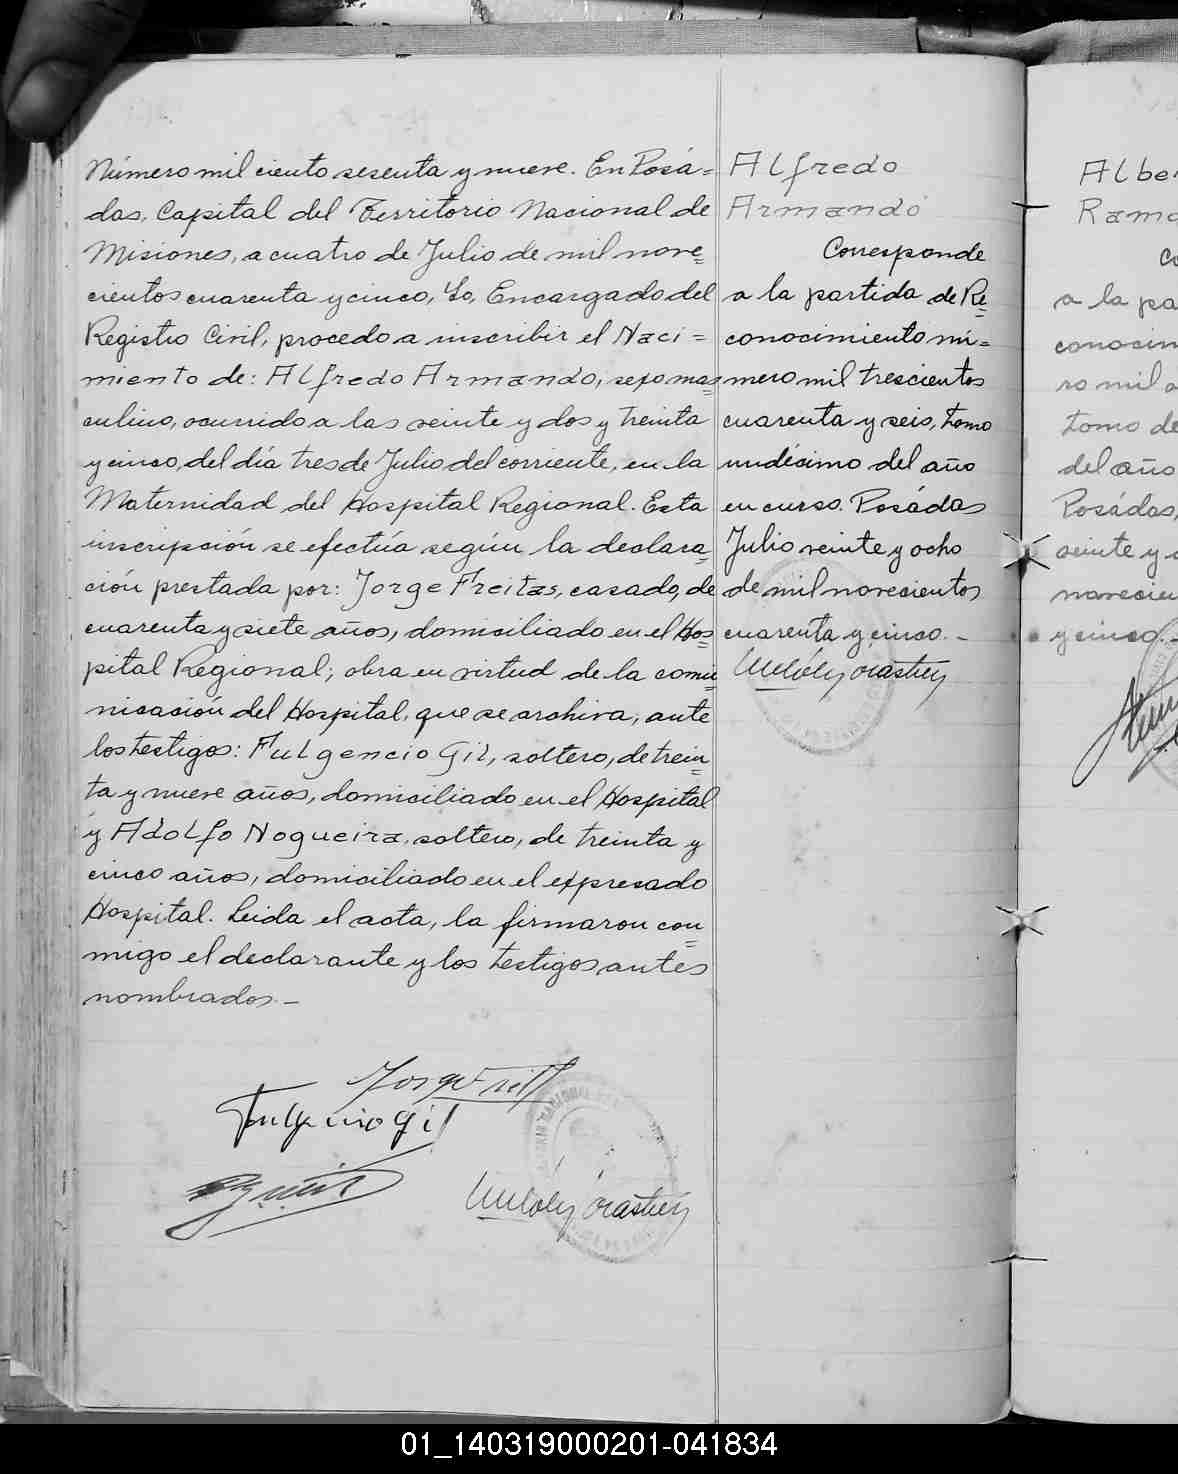 Número mil ciento sesenta y nueve. En Posá=
das, Capital del Territorio Nacional de
Misiones, a cuatro de Julio de mil nove=
cientos cuarenta y cinco, Yo, Encargado del
Registro Civil, procedo a inscribir el Naci=
miento de: Alfredo Armando, sexo mas=
culino, ocurrido a las veinte y dos y treinta
y cinco, del día tres de Julio del corriente, en la
Maternidad del Hospital Regional. Esta
inscripción se efectúa según la declara=
ción prestada por: Jorge Freitas, casado, de
cuarenta y siete años, domiciliado en el Hos=
pital Regional; obra en virtud de la comu=
nicación del Hospital, que se archiva, ante
los testigos: Fulgencio Gil, soltero, de trein=
ta y nueve años, domiciliado en el Hospital
y Adolfo Nogueira, soltero, de treinta y
cinco años, domiciliado en el expresado
Hospital. Leida el acta, la firmaron con=
migo el declarante y los testigos antes
nombrados.-
Fulgencio Gil
Alfredo
Armando
Corresponde
a la partida de Re=
conocimiento nú=
mero mil trescientos
cuarenta y seis, tomo
undécimo del año
en curso. Posádas
Julio veinte y ocho
de mil novecientos
cuarenta y cinco.-
Albe
Ramo
Co
a la pa
conocim
ro mil
tomo de
del año
Posádas,
veinte y
novecien
y cinco.-
01_140319000201-041834